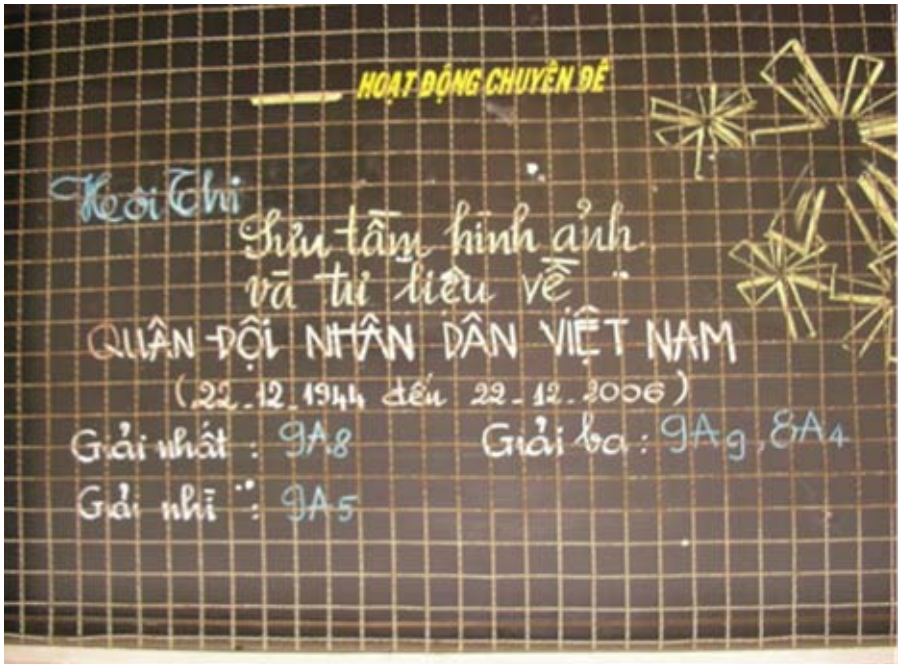 HOẠT ĐỘNG CHUYÊN ĐỀ
Hội Thi
Sưu tầm hình ảnh
và tư liệu về
QUÂN ĐỘI NHÂN DÂN VIỆT NAM
(22.12.1944 đến 22.12.2006)
Giải nhất : 9A8
Giải ba : 9A9, 8A4
Giải nhì : 9A5